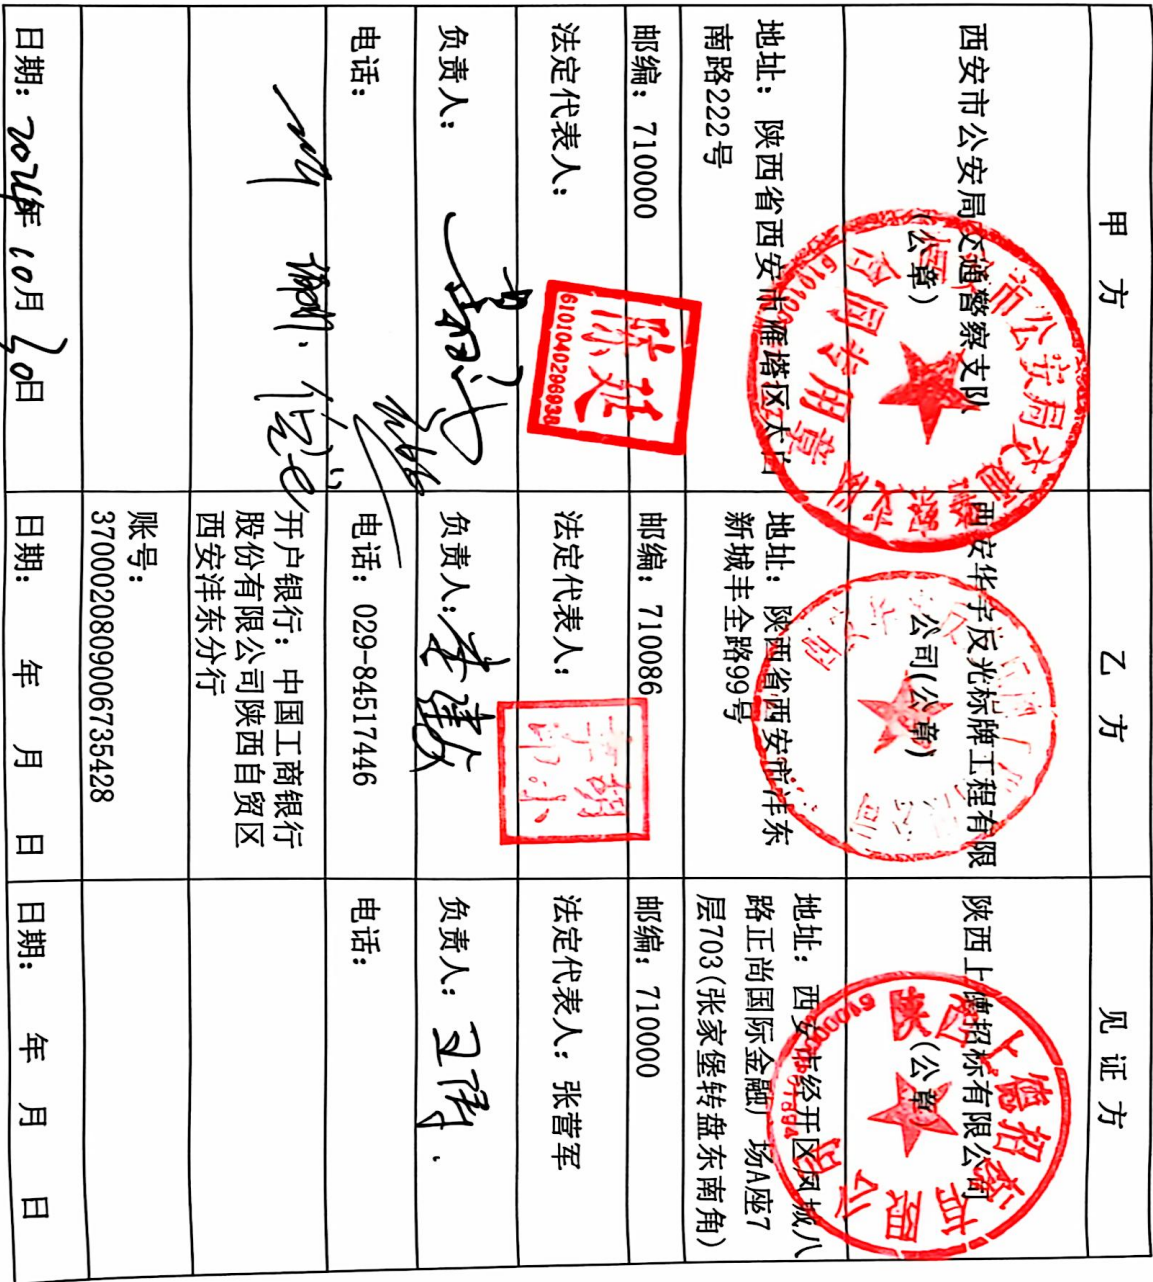 甲 方
乙 方
见 证 方
西安市公安局交通警察支队
(公章)
西安华宇反光标牌工程有限
公司(公章)
陕西上德招标有限公司
(公章)
地址：陕西省西安市雁塔区太白
南路222号
地址：陕西省西安市沣东
新城丰全路99号
地址：西安市经开区凤城八
路正尚国际金融广场A座7
层703(张家堡转盘东南角)
邮编：710000
邮编：710086
邮编：710000
法定代表人：
法定代表人：
法定代表人：张营军
负责人：
负责人：
负责人：
电话：
电话：029-84517446
电话：
开户银行：中国工商银行
股份有限公司陕西自贸区
西安沣东分行
账号：
3700020809006735428
日期：2024年10月30日
日期： 年 月 日
日期： 年 月 日
西安市公安局交通警察支队
合同专用章
陈延
6101040296938
陕西上德招标有限公司